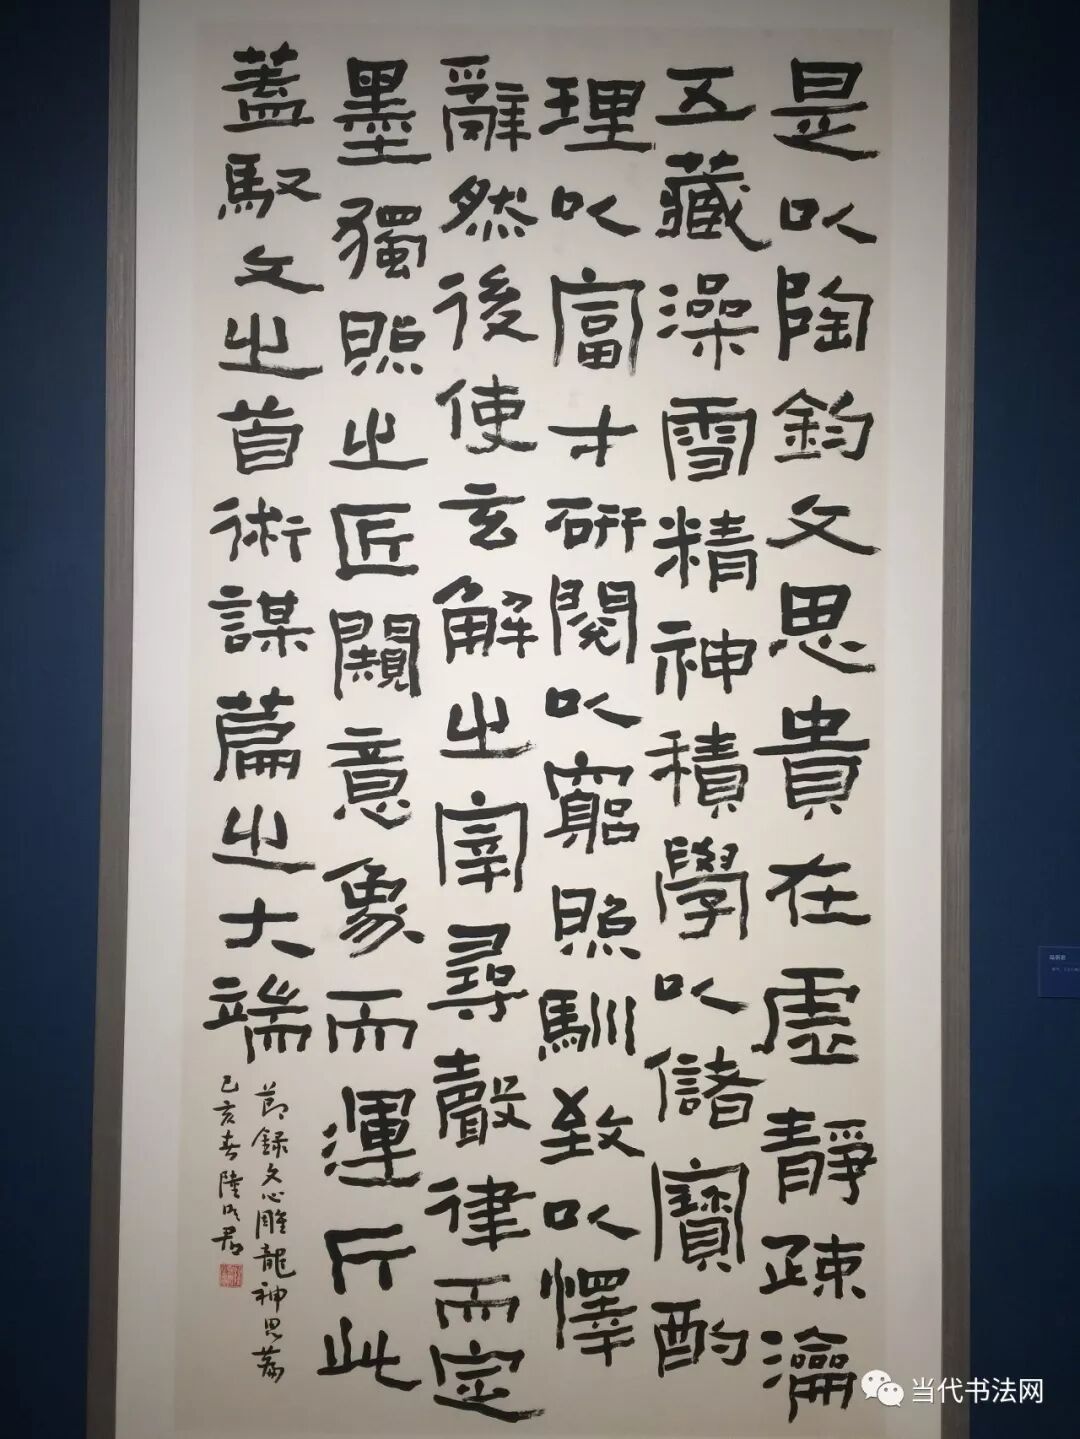 是以陶鈞文思貴在虛靜疏瀹
五藏澡雪精神積學以儲寶酌
理以富才研閱以窮照馴致以懌
辭然後使玄解之宰尋聲律而定
墨獨照之匠闚意象而運斤此
蓋馭文之首術謀篇之大端
節録文心雕龍神思篇
己亥春陸明君
当代书法网